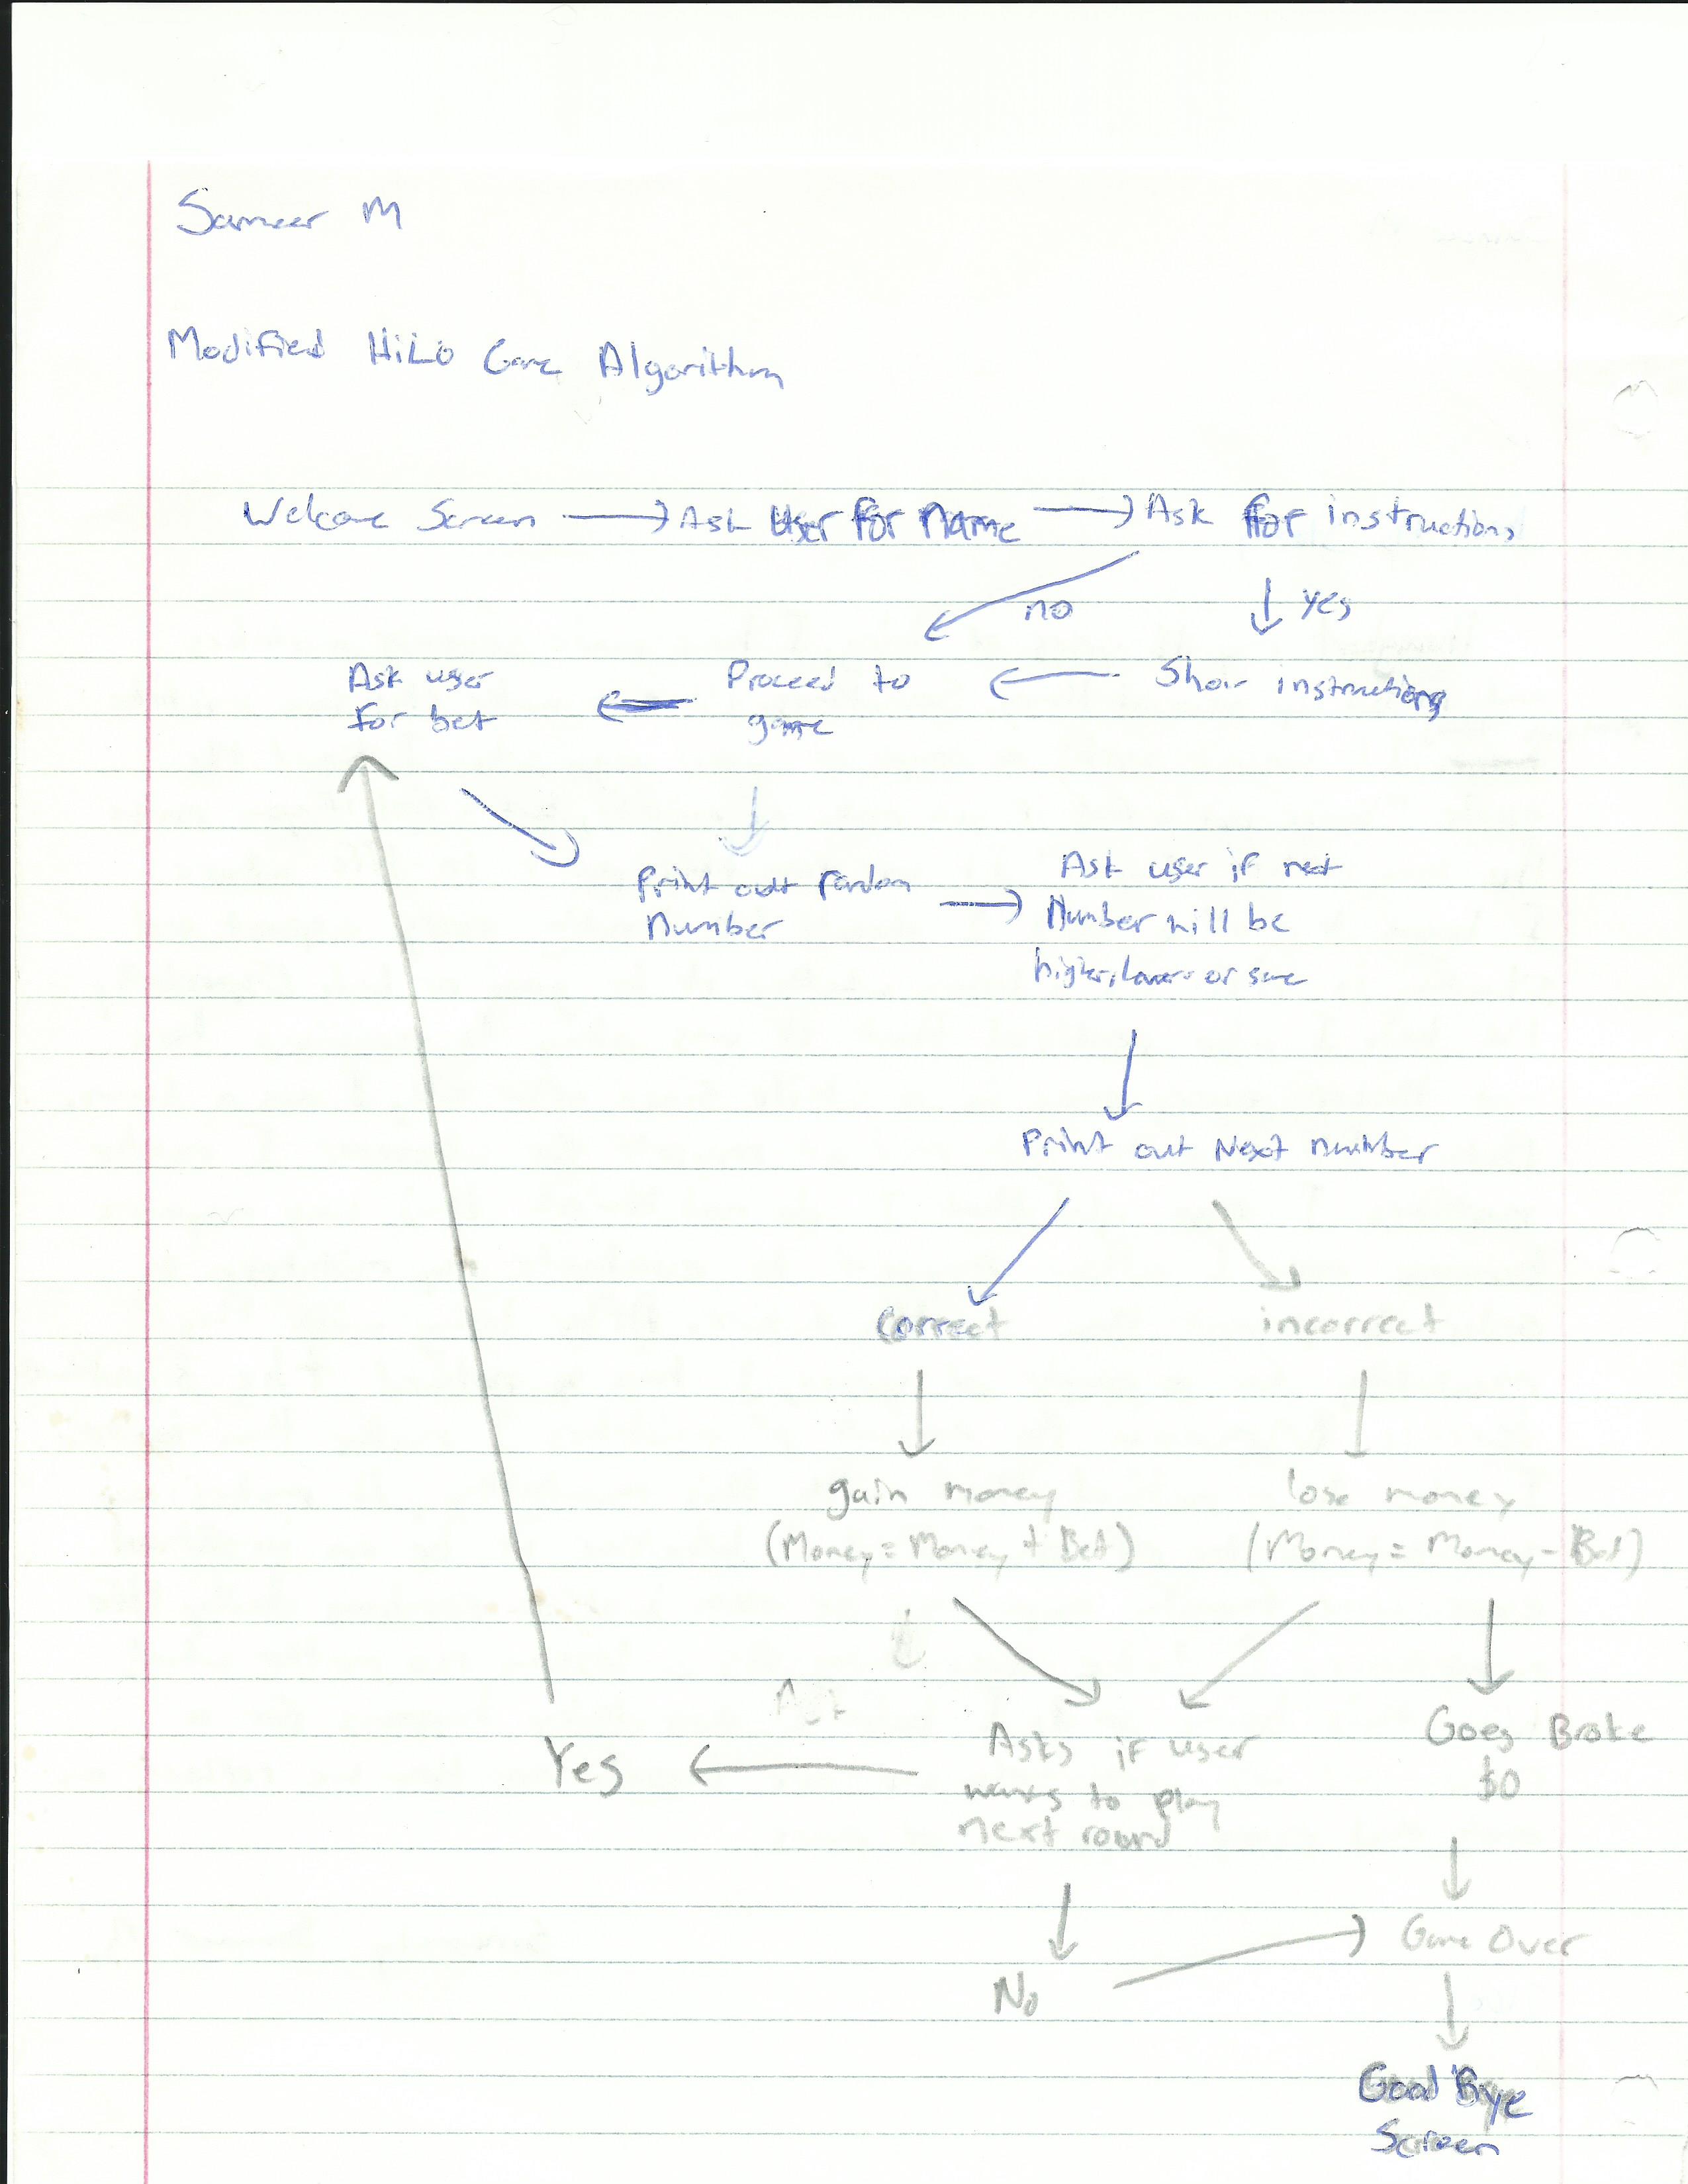 Sameer M
Modified HiLo Game Algorithm
Welcome Screen → Ask User For Name → Ask For instructions
no
yes
Ask user
for bet
Proceed to
game
Show instructions
Print out random
Number
Ask user if next
Number will be
higher, lower or same
Print out Next number
Correct
incorrect
gain money
(Money = Money + Bet)
lose money
(Money = Money - Bet)
Yes
Asks if user
wants to play
next round
Goes Broke
$0
Game Over
No
Good Bye
Screen